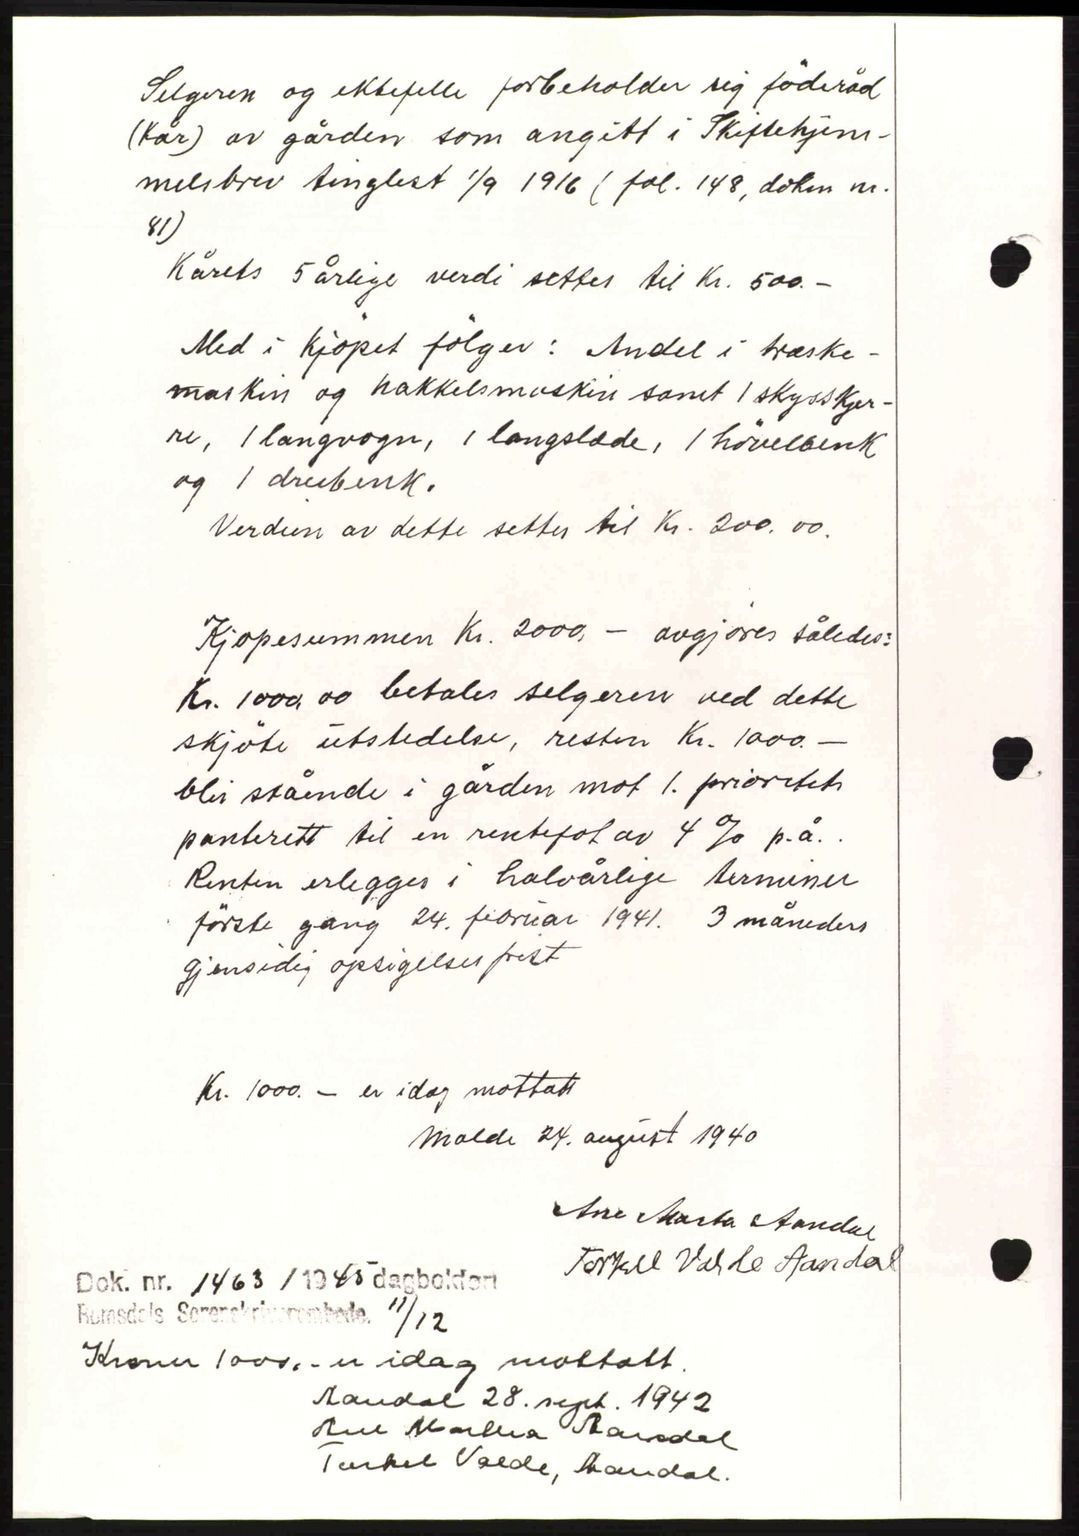 Selgeren og ektefelle forbeholder sig föderåd
(kår) av gården som angitt i Skiftehjem-
melsbrev tinglest 1/9 1916 (fol. 148, dokm nr.
81)
Kårets 5 årlige verdi settes til Kr. 500.-
Med i kjöpet fölger: Andel i træske-
maskin og hakkelsmaskin samt 1 skysskjer-
re, 1 langvogn, 1 langslæde, 1 hövelbenk
og 1 dreibenk.
Verdien av dette settes til Kr. 200.00.
Kjöpesummen Kr. 2000,- avgjöres således:
Kr. 1000,00 betales selgeren ved dette
skjöte utstedelse, resten Kr. 1000.-
blir stående i gården mot 1. prioritets
panterett til en rentefot av 4 % p.å..
Renten erlegges i halvårlige terminer
förste gang 24. februar 1941. 3 måneders
gjensidig opsigelses frist
Kr. 1000.- er idag mottatt
Molde 24. august 1940
Ane Marta Aandal
Torkell Valde Aandal
Dok. nr. 1463 / 1945 dagboken
Romsdals Sorenskriverembede. 11/12
Kroner 1000,- er idag mottatt.
Aandal 28. sept. 1942
Ane Martha Aandal
Torkel Valde, Aandal.